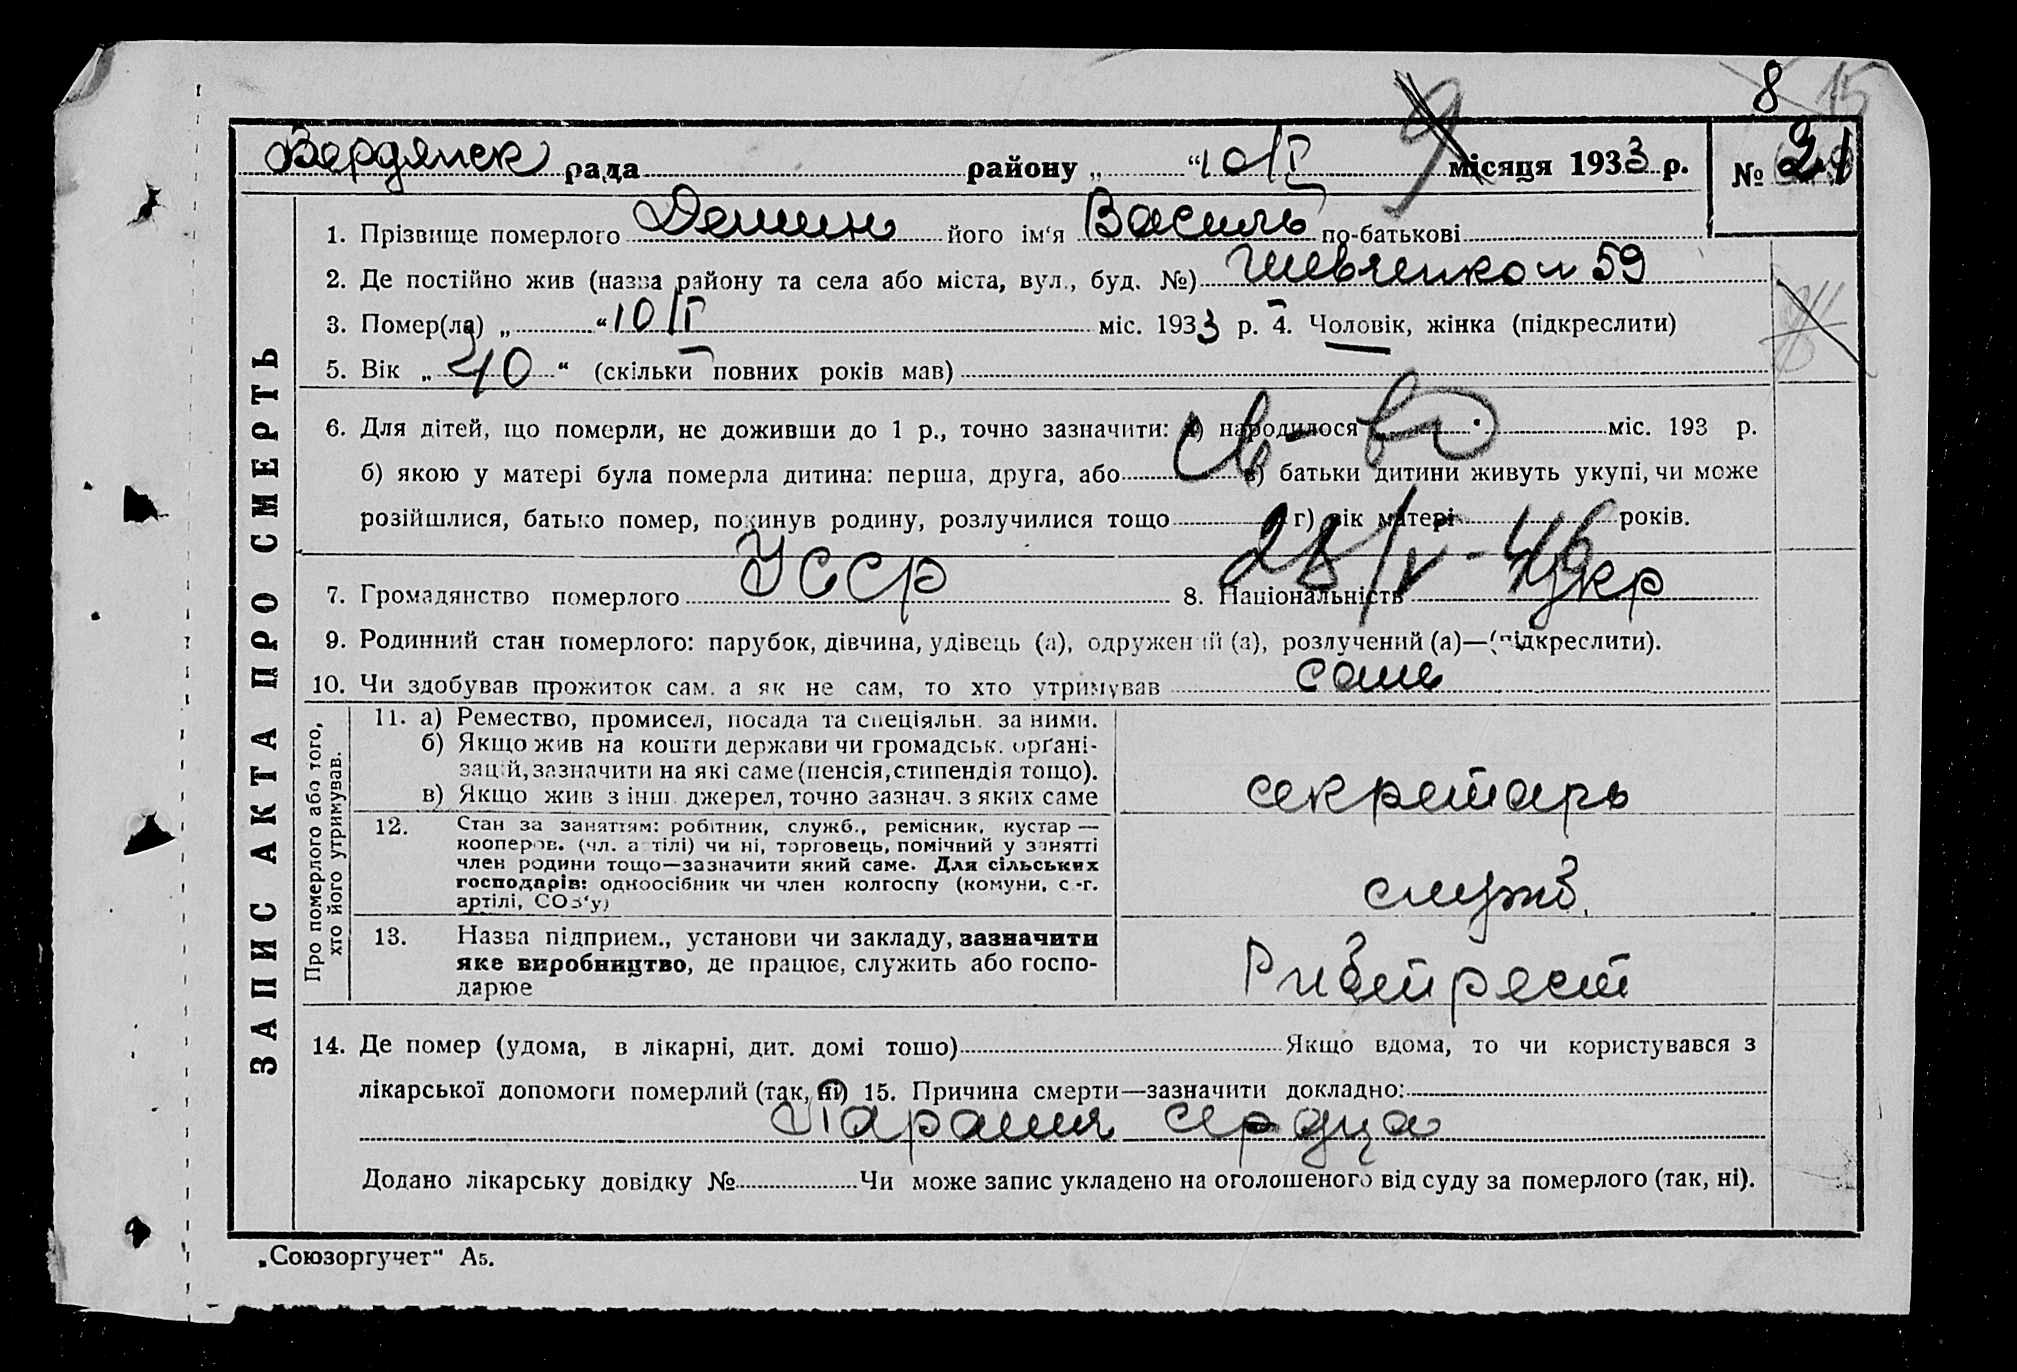 8 15
Бердянск рада району „ “ 10/I місяця 1933 р. № 21
1. Прізвище померлого Демин його ім'я Василь по-батькові
2. Де постійно жив (назва району та села або міста, вул., буд. №) Шевченко 59
3. Помер(ла) „ “ 10/I міс. 1933 р. 4. Чоловік, жінка (підкреслити)
5. Вік „ 40 “ (скільки повних років мав)
6. Для дітей, що померли, не доживши до 1 р., точно зазначити: а) народилося міс. 193 р.
св-во
б) якою у матері була померла дитина: перша, друга, або в) батьки дитини живуть укупі, чи може
розійшлися, батько помер, покинув родину, розлучилися тощо г) вік матері років.
28/V-46
7. Громадянство померлого УССР 8. Національність Укр
9. Родинний стан померлого: парубок, дівчина, удівець (а), одружений (а), розлучений (а)—(підкреслити).
10. Чи здобував прожиток сам, а як не сам, то хто утримував сам
ЗАПИС АКТА ПРО СМЕРТЬ
Про померлого або того,
хто його утримував.
11. а) Ремество, промисел, посада та спеціяльн. за ними.
б) Якщо жив на кошти держави чи громадськ. орґані-
зацій, зазначити на які саме (пенсія, стипендія тощо).
в) Якщо жив з інш. джерел, точно зазнач. з яких саме
секретарь
12. Стан за заняттям: робітник, служб., ремісник, кустар —
кооперов. (чл. артілі) чи ні, торговець, помічний у занятті
член родини тощо—зазначити який саме. Для сільських
господарів: одноосібник чи член колгоспу (комуни, с.-г.
артілі, СОЗ'у)
служб.
13. Назва підприєм., установи чи закладу, зазначити
яке виробництво, де працює, служить або госпо-
дарює
Рибтрест
14. Де помер (удома, в лікарні, дит. домі тошо) Якщо вдома, то чи користувався з
лікарської допомоги померлий (так, ні) 15. Причина смерти—зазначити докладно:
сердца
Додано лікарську довідку № Чи може запис укладено на оголошеного від суду за померлого (так, ні).
„Союзоргучет" А5.